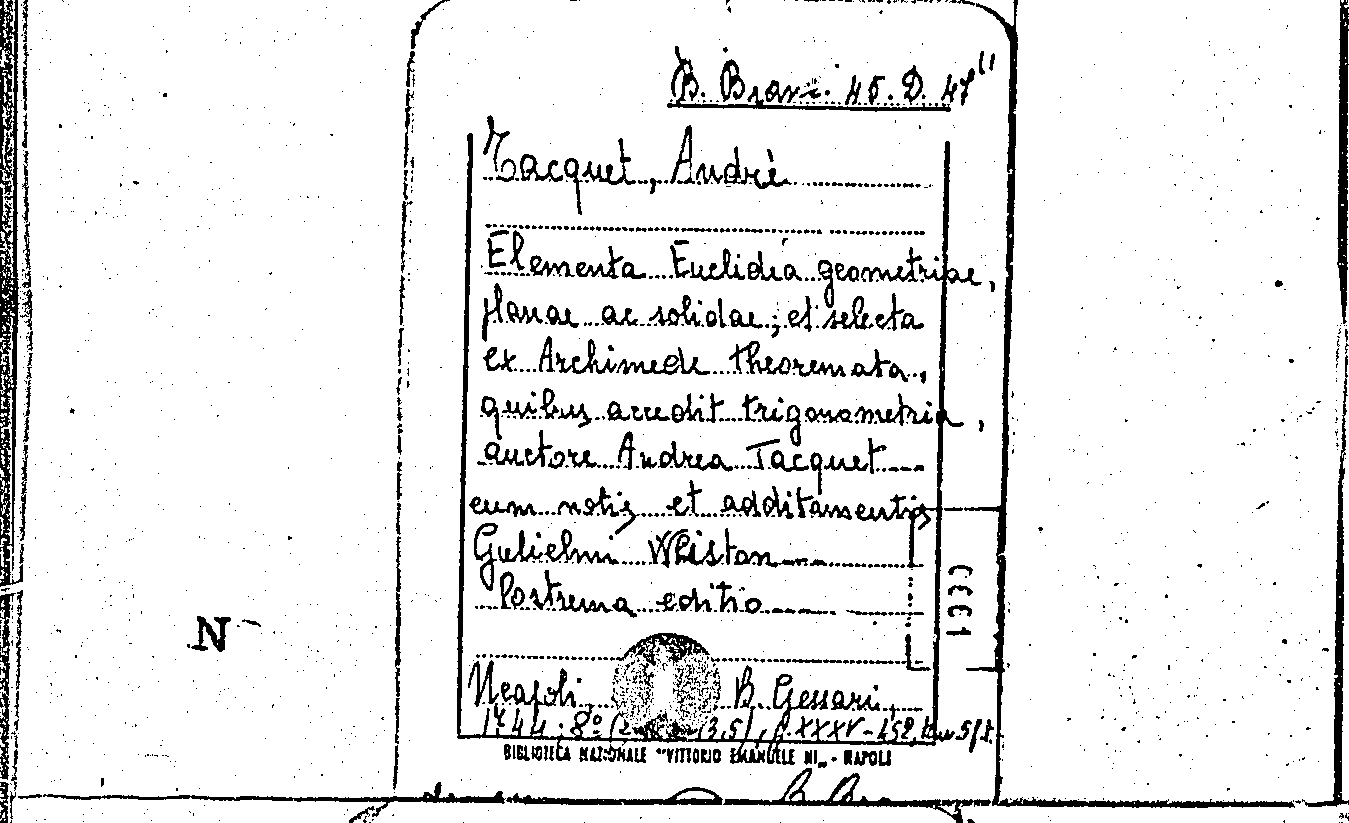 B. Branc. 45. D. 47
Tacquet, Andrè
Elementa Euclidea geometriae,
planae ac solidae; et selecta
ex Archimede theoremata,
quibus accedit trigonometria,
auctore Andrea Tacquet ---
cum notis et additamentis
Gulielmi Whiston ---
Postrema editio ---
N
Neapoli, B. Gessari,
1744; 8º 13,5), p. XXXV-452,
BIBLIOTECA NAZIONALE "VITTORIO EMANUELE III" - NAPOLI